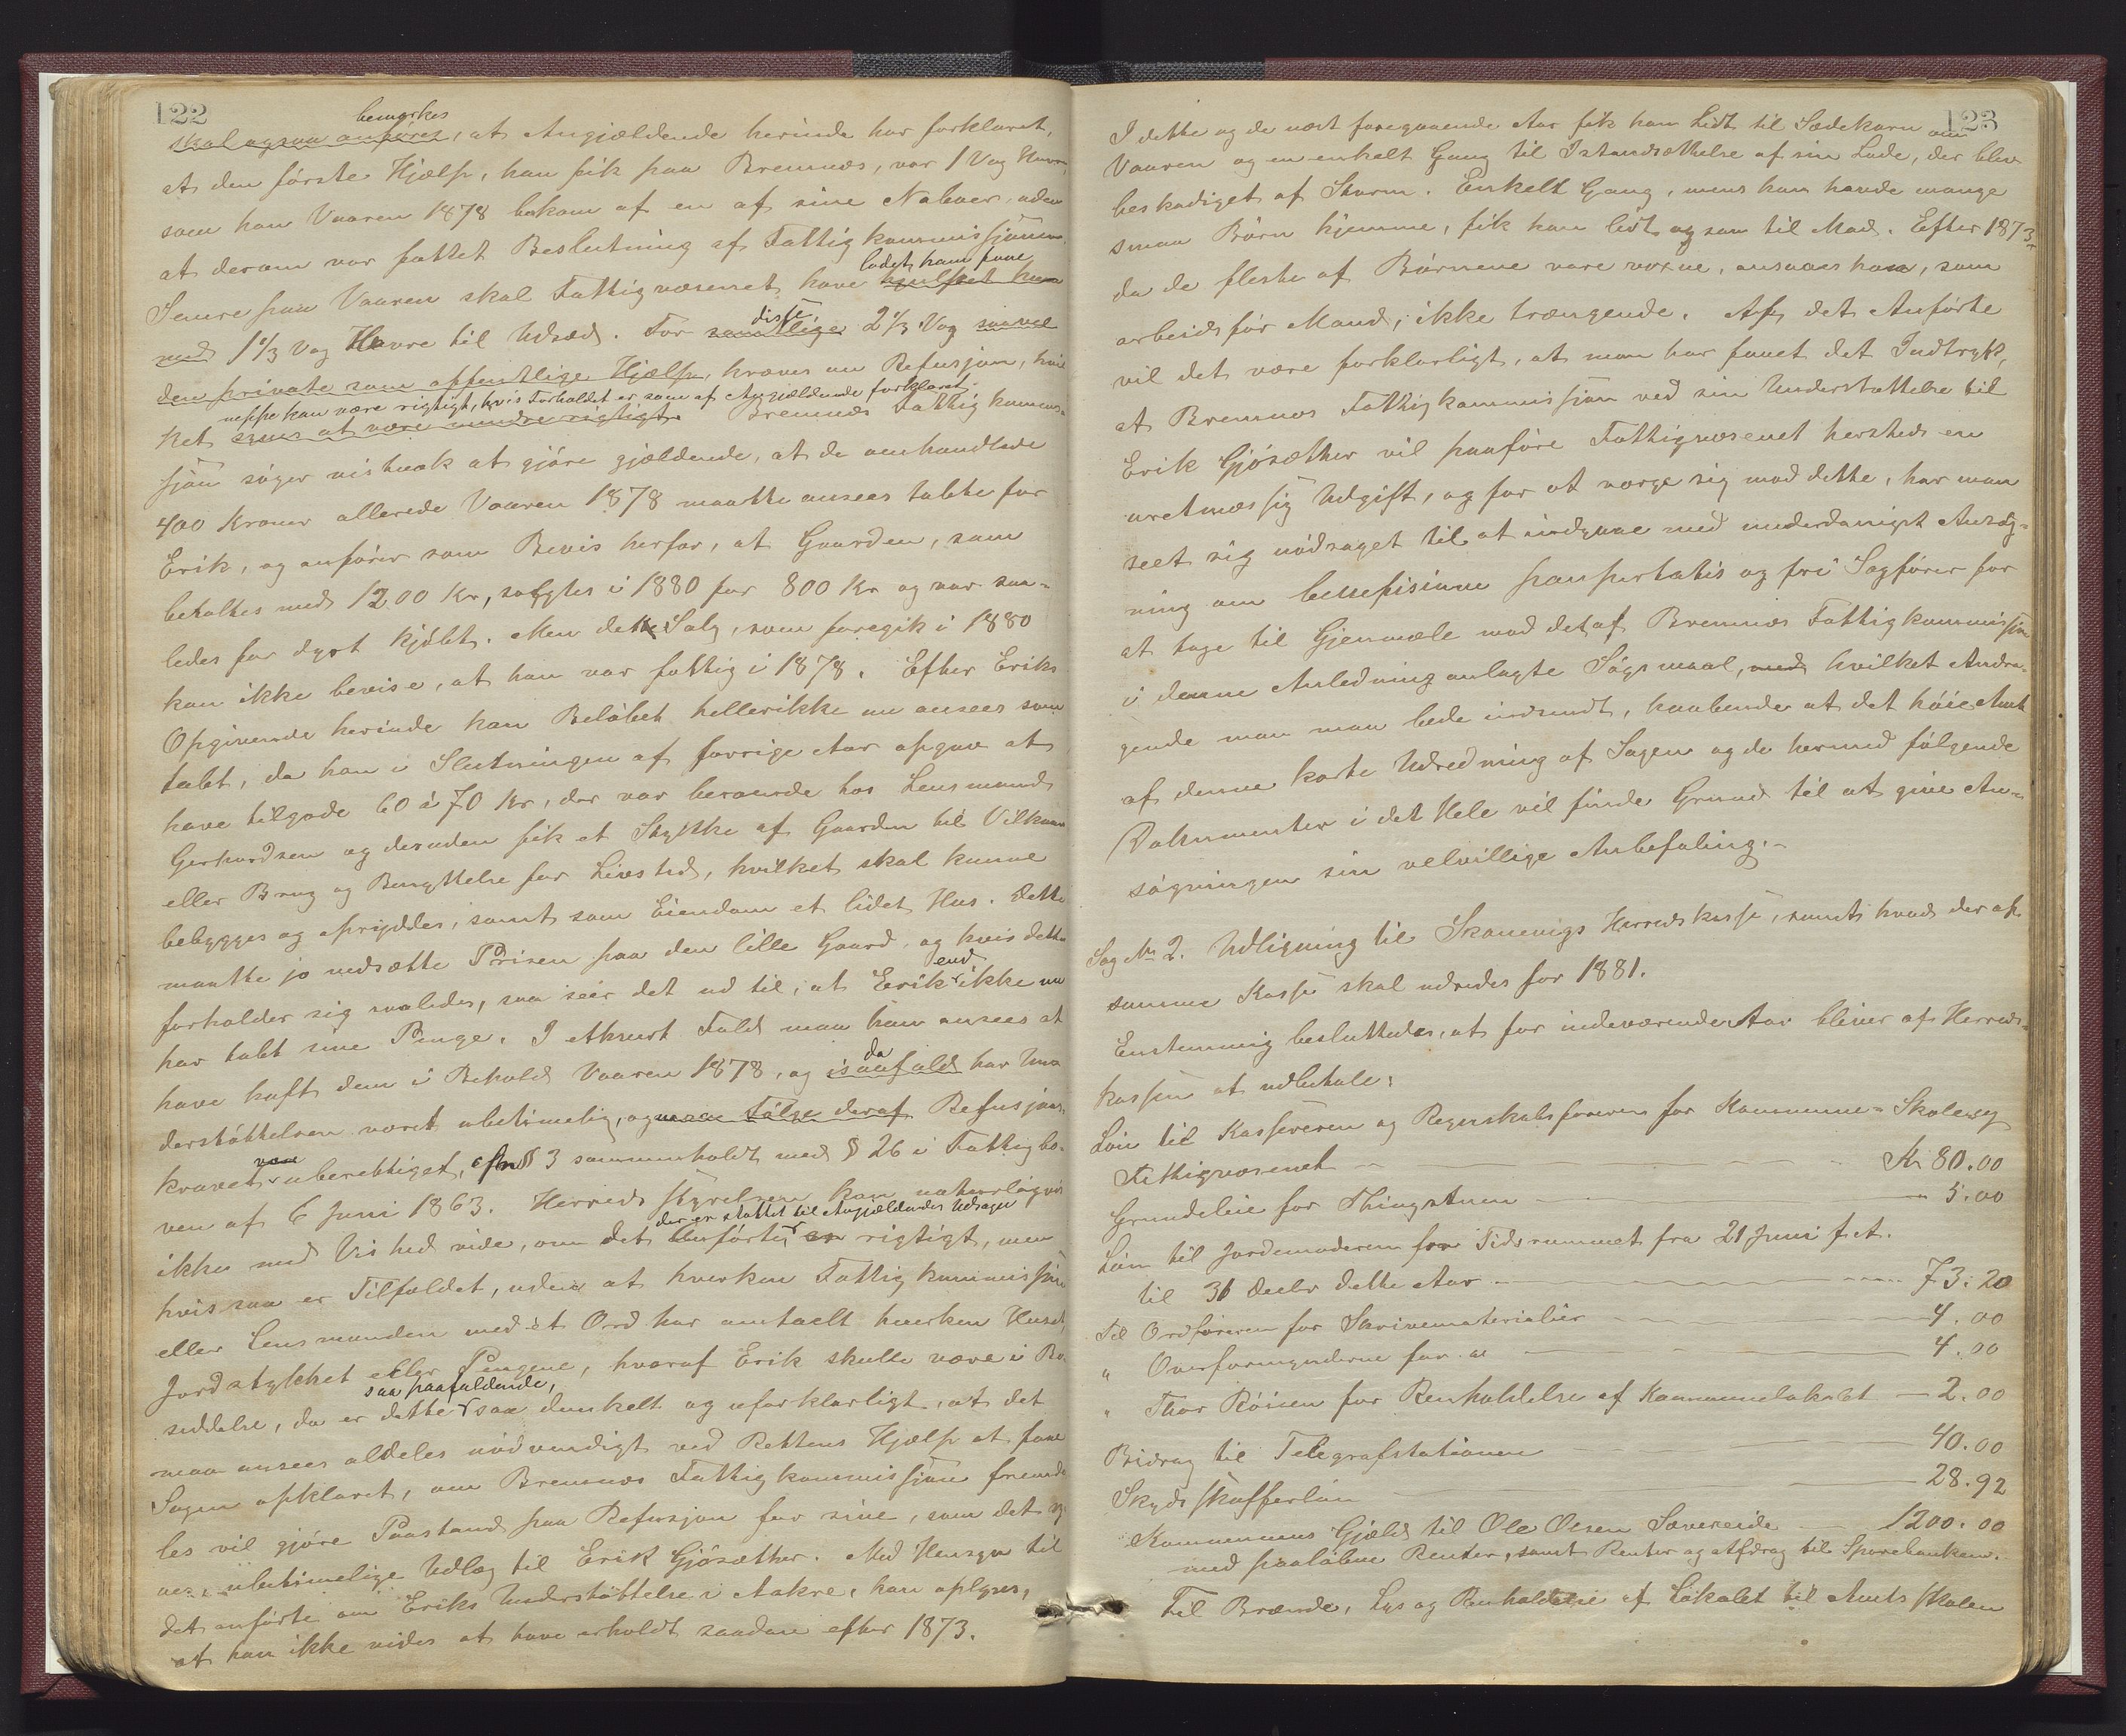 122
bemærkes
skal ogsaa anføres, at Angjældende herinde har forklaret,
at den første Hjælp, han fik paa Bremnæs, var 1 Vog Havre,
som han Vaaren 1878 bekom af en af sine Naboer, uden
at derom var fattet Beslutning af Fattigkommissjonen.
ladet ham faae
Senere paa Vaaren skal Fattigvæsenet have hjulpet ham
disse
med 1 1/3 Vog Havre til Udsæd. For samtlige 2 1/3 Vog saavel
den private som offentlige Hjælp, kræves nu Refusjon, hvil
neppe kan være rigtigt, hvis Forholdet er, som af Angjældende forklaret.
ket synes at være mindre rigtigt. Bremnæs Fattigkommis-
sjon søger vistnok at gjøre gjældende, at de omhandlede
400 Kroner allerede Vaaren 1878 maatte ansees tabte for
Erik, og anfører som Bevis herfor, at Gaarden, som
betaltes med 1200 Kr, solgtes i 1880 for 800 Kr og var saa-
ledes for dyrt kjøbt. Men dette Salg, som foregik i 1880
kan ikke bevise, at han var fattig i 1878. Efter Eriks
Opgivende herinde kan Beløbet hellerikke nu ansees som
tabt, da han i Slutningen af forrige Aar opgav at
have tilgode 60 à 70 Kr, der var beroende hos Lensmand
Gerhardsen og desuden fik et Stykke af Gaarden til Vilkaar
eller Brug og Benyttelse for Livstid, hvilket skal kunne
bebygges og opryddes, samt som Eiendom et lidet Hus. Dette
maatte jo nedsætte Prisen paa den lille Gaard, og hvis dette
end
forholder sig saaledes, saa seer det ud til, at Erik ikke nu
har tabt sine Penge. I ethvert Fald maa han ansees at
da
have havt dem i Behold Vaaren 1878, og isaafald har Un-
derstøttelsen været ubetimelig, og som Følge deraf Refusjons-
være
kravet uberettiget, efter § 3 sammenholdt med § 26 i Fattiglo-
ven af 6 Juni 1863. Herredsstyrelsen kan naturligvis
der er støttet til Angjældendes Udsagn
ikke med Vished vide, om det Anførte er rigtigt, men
hvis saa er Tilfældet, uden at hverken Fattigkommissjon
eller Lensmanden med ét Ord har omtalt hverken Huset,
Jordstykket eller Pengene, hvoraf Erik skulle være i Be-
saa paafaldende,
siddelse, da er dette saa dunkelt og uforklarligt, at det
maa ansees aldeles nødvendigt ved Rettens Hjælp at faae
Sagen opklaret, om Bremnæs Fattigkommissjon fremde
les vil gjøre Paastand paa Refusjon for sine, som det sy-
nes, ubetimelige Udlæg til Erik Gjøsæther. Med Hensyn til
det anførte om Eriks Understøttelse i Aakre, kan oplyses,
at han ikke vides at have erholdt saadan efter 1873.
123
I dette og de næst foregaaende Aar fik han Lidt til Sædekorn om
Vaaren og en enkelt Gang til Istandsættelse af sin Lade, der blev
beskadiget af Storm. Enkelt Gang, mens han havde mange
smaa Børn hjemme, fik han lidt ogsaa til Mad. Efter 1873,
da de fleste af Børnene vare voxne, ansaaes han, som
arbeidsfør Mand, ikke trængende. Af det Anførte
vil det være forklarligt, at man har faaet det Indtryk,
at Bremnæs Fattigkommissjon ved sin Understøttelse til
Erik Gjøsæther vil paaføre Fattigvæsenet hersteds en
uretmæssig Udgift, og for at værge sig mod dette, har man
seet sig nødsaget til at indgaae med underdanigst Ansøg-
ning om beneficium paupertatis og fri Sagfører for
at tage til Gjenmæle mod det af Bremnæs Fattigkommissjon
i denne Anledning anlagte Søgsmaal, med hvilket Andra-
gende man maa bede indsendt, haabende at det høie Amt
af denne korte Udredning af Sagen og de hermed følgende
Dokumenter i det Hele vil finde Grund til at give An-
søgningen sin velvillige Anbefaling.-
Sag No 2. Udligning til Skonevigs Herredskasse, samt hvad der af
samme Kasse skal udredes for 1881.
Enstemmig besluttedes, at for indeværende Aar bliver af Herreds-
kassen at udbetale:
Løn til Kassereren og Regnskabsføreren for Kommune- Skole- og
Fattigvæsenet Kr 80.00
Grundeleie for Thingstuen 5.00
Løn til Jordemoderen for Tidsrummet fra 21 Juni f. A.
til 31 Decbr dette Aar 73.20
Til Ordføreren for Skrivematerialier 4.00
" Overformynderne for do 4.00
" Thor Røisen for Renholdelse af Kommunelokalet 2.00
Bidrag til Telegrafstationen 40.00
Skydsskafferløn 28.92
Kommunens Gjæld til Ole Olsen Sævereide 1200.00
med paaløbne Renter, samt Renter og Afdrag til Sparebanken.
Til Brænde, Lys og Renholdelse af Lokalet til Amtsskolen